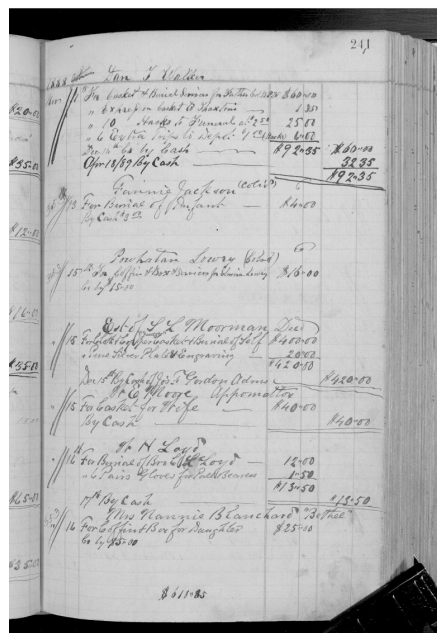 241
1888 Dan F Walker
" For Casket & Burial Services for Father $60-00
" Express on Casket 1 35
" 10 Hacks to Funeral at 2 50 25 00
" 6 Extra Trips to Depot 6-00
Dec by Cash $92-35 $60-00
Apr 13/89 By Cash 32 35
$92-35
Fannie Jackson (Col'd)
13 For Burial of Infant $4-00
By Cash
Powhatan Lowry (Col'd)
15 For Coffin & Box & Services for Lowry $16-00
Cr by 15-00
Est of S L Moorman Dec
15 For Casket & Burial of Self $400-00
" Fine Silver Plate & Engraving 20-00
$420-00
Dec 15th By Cash of Jos F Gordon Adms $420-00
W E Moore Appomattox
15 For Casket for Wife $40-00
By Cash $40-00
W H Loyd
16 For Burial of Bro Loyd 12-00
" 6 Pairs Gloves for Pall Bearers 1-50
$13-50
17th By Cash $13-50
Mrs Nannie Blanchard "Bethel"
16 For Coffin & Box for Daughter $25-00
Cr by $5-00
$611-85